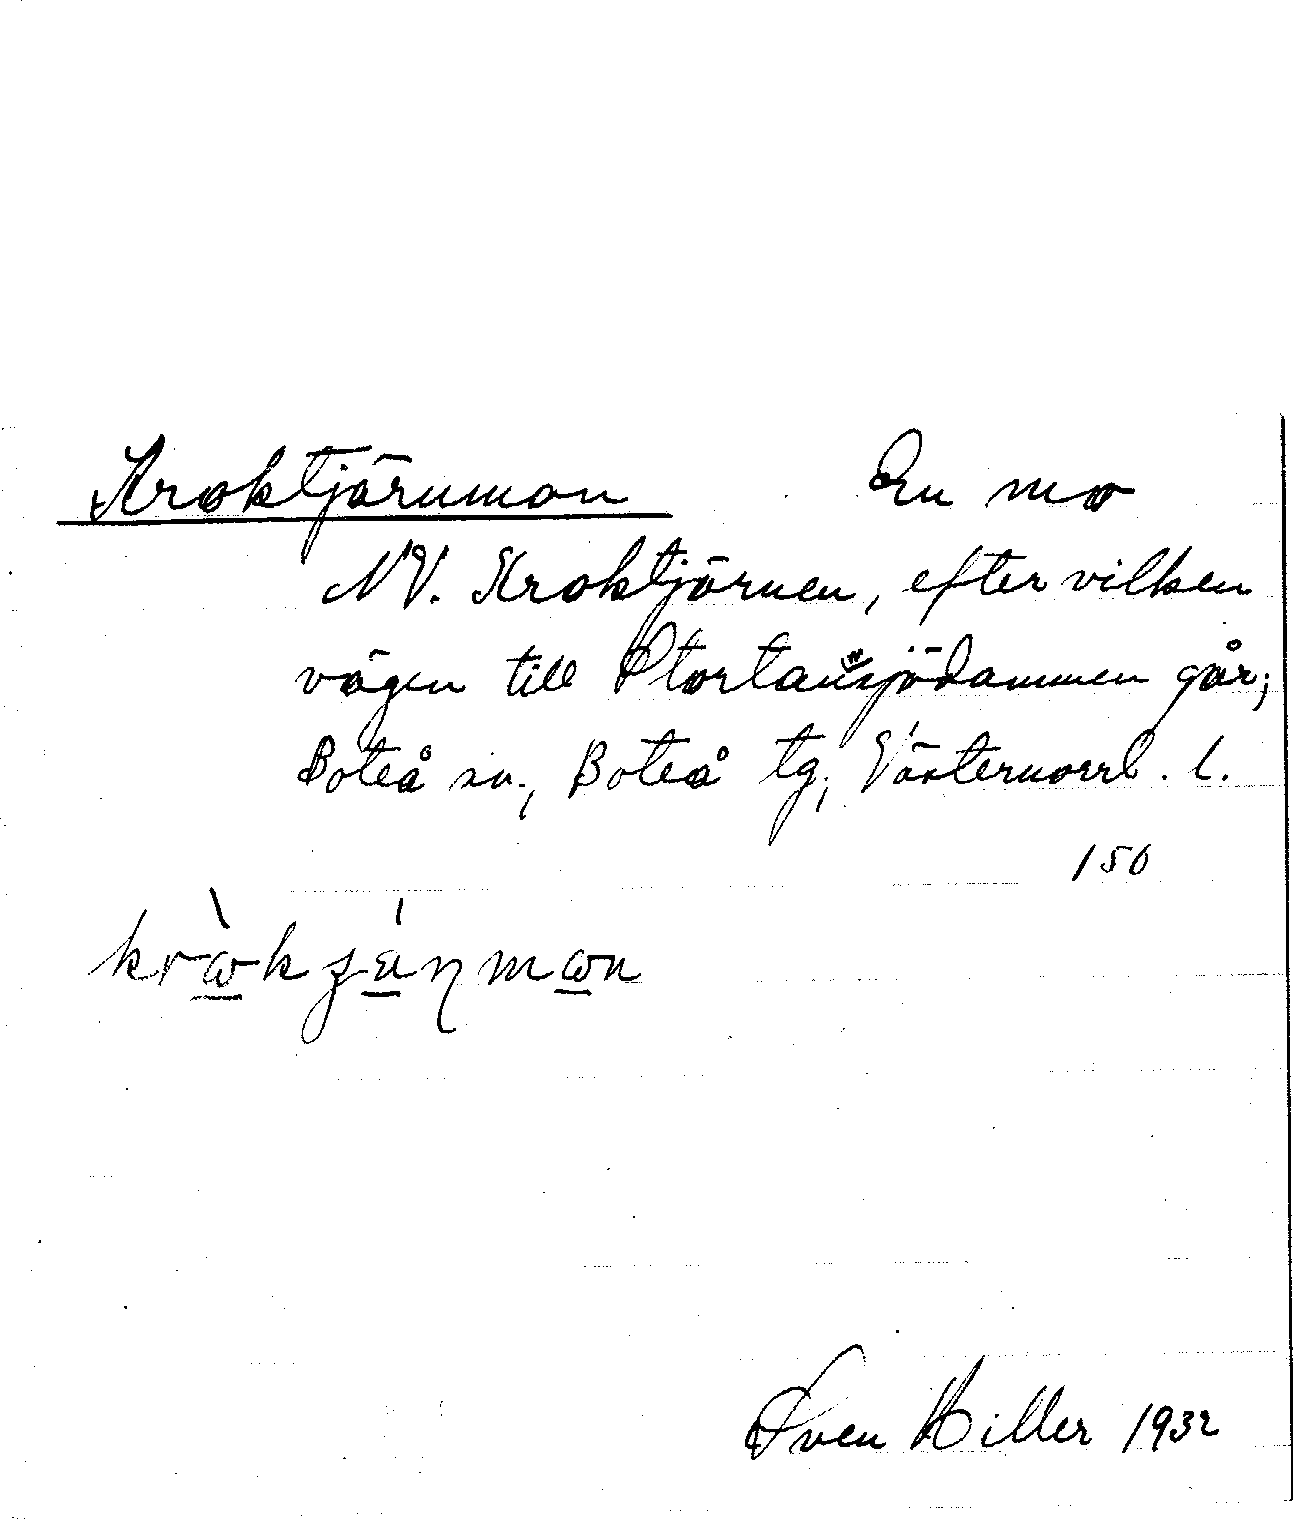 Kroktjärnmon En mo
NV. Kroktjärnen, efter vilken
vägen till Stortansjödammen går;
Boteå sn., Boteå tg; Västernorrl. l.
150
Sven Hiller 1932